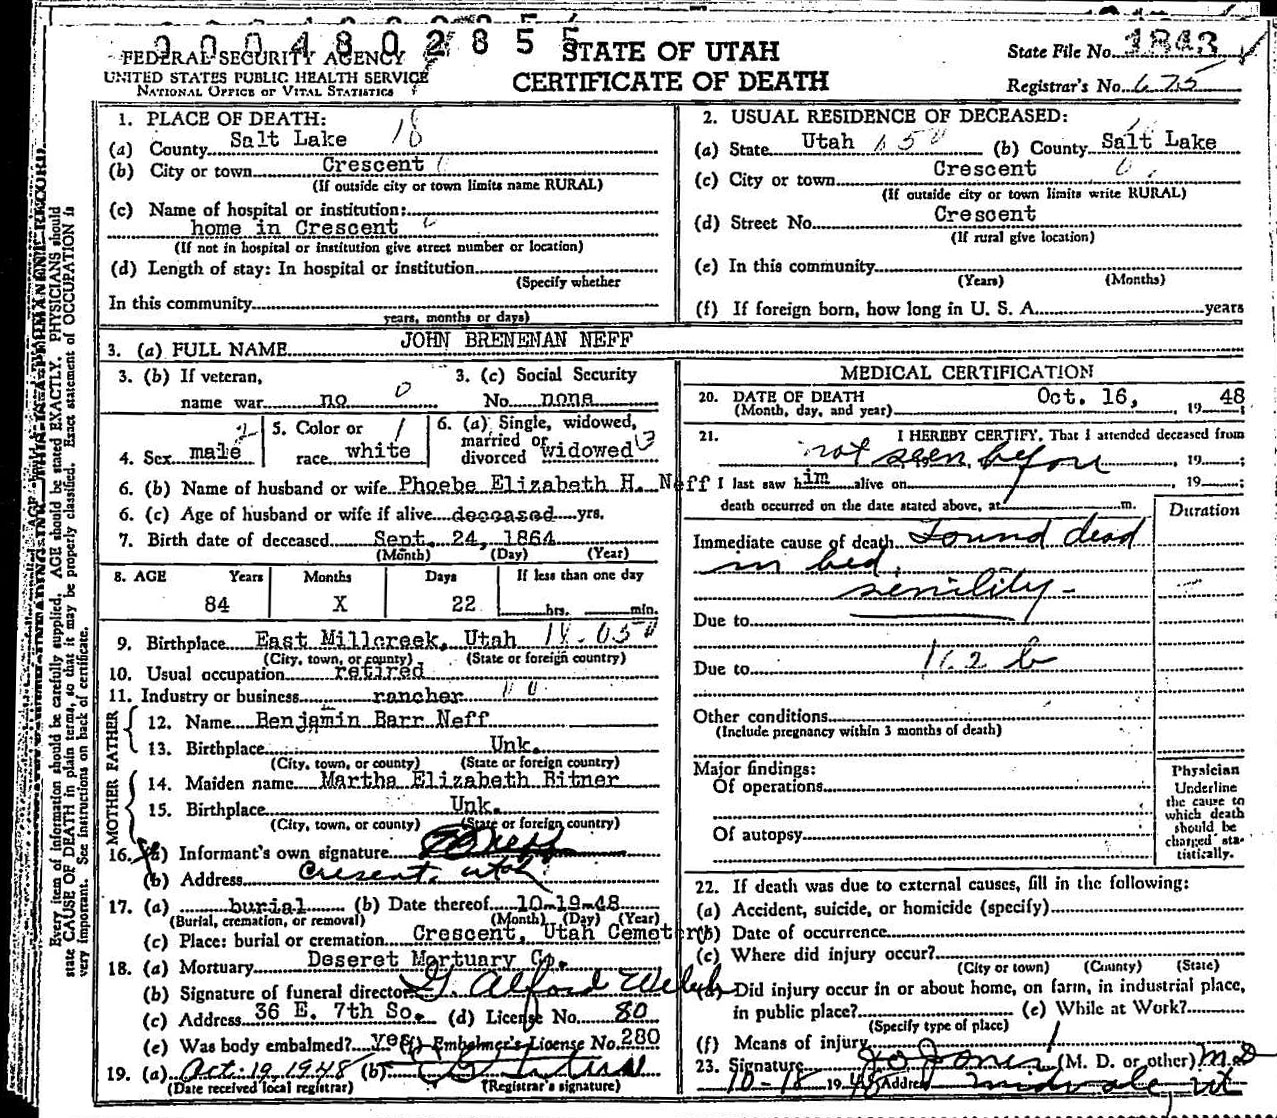 0004802855
FEDERAL SECURITY AGENCY
UNITED STATES PUBLIC HEALTH SERVICE
NATIONAL OFFICE OF VITAL STATISTICS
STATE OF UTAH
CERTIFICATE OF DEATH
State File No. 1843
Registrar's No. 675
1. PLACE OF DEATH:
(a) County Salt Lake 18
(b) City or town Crescent
(If outside city or town limits name RURAL)
(c) Name of hospital or institution:
home in Crescent
(If not in hospital or institution give street number or location)
(d) Length of stay: In hospital or institution
(Specify whether
In this community
years, months or days)
2. USUAL RESIDENCE OF DECEASED:
(a) State Utah (b) County Salt Lake
(c) City or town Crescent
(If outside city or town limits write RURAL)
(d) Street No. Crescent
(If rural give location)
(e) In this community
(Years) (Months)
(f) If foreign born, how long in U. S. A. years
3. (a) FULL NAME JOHN BRENENAN NEFF
3. (b) If veteran, name war no 0
3. (c) Social Security No. none
4. Sex male
5. Color or race white
6. (a) Single, widowed, married or divorced widowed
6. (b) Name of husband or wife Phoebe Elizabeth H. Neff
6. (c) Age of husband or wife if alive deceased yrs.
7. Birth date of deceased Sept. 24, 1864
(Month) (Day) (Year)
8. AGE Years Months Days If less than one day
84 X 22 hrs. min.
9. Birthplace East Millcreek, Utah
(City, town, or county) (State or foreign country)
10. Usual occupation retired
11. Industry or business rancher
FATHER
12. Name Benjamin Barr Neff
13. Birthplace Unk.
(City, town, or county) (State or foreign country)
MOTHER
14. Maiden name Martha Elizabeth Ritner
15. Birthplace Unk.
(City, town, or county) (State or foreign country)
16. (a) Informant's own signature Neff
(b) Address Cresent, Utah
17. (a) burial (b) Date thereof 10-19-48
(Burial, cremation, or removal) (Month) (Day) (Year)
(c) Place: burial or cremation Crescent, Utah Cemeter
18. (a) Mortuary Deseret Mortuary Co.
(b) Signature of funeral director G. Alford Welch
(c) Address 36 E. 7th So. (d) License No. 80
(e) Was body embalmed? yes (f) Embalmer's License No. 280
19. (a) Oct. 19, 1948 (b)
(Date received local registrar) (Registrar's signature)
MEDICAL CERTIFICATION
20. DATE OF DEATH
(Month, day, and year) Oct. 16, 1948;
21. I HEREBY CERTIFY, That I attended deceased from
not seen before, 19 ;
I last saw him alive on , 19 ;
death occurred on the date stated above, at m.
Duration
Immediate cause of death Found dead
in bed,
senility -
Due to
Due to 162 b
Other conditions
(Include pregnancy within 3 months of death)
Major findings:
Of operations
Of autopsy
Physician
Underline
the cause to
which death
should be
charged sta-
tistically.
22. If death was due to external causes, fill in the following:
(a) Accident, suicide, or homicide (specify)
(b) Date of occurrence
(c) Where did injury occur?
(City or town) (County) (State)
(d) Did injury occur in or about home, on farm, in industrial place,
in public place? (e) While at Work?
(Specify type of place)
(f) Means of injury
23. Signature Jones (M. D. or other) M.D
10-18 1948 Address Midvale, Ut
Every item of information should be carefully supplied. AGE should be stated EXACTLY. PHYSICIANS should
state CAUSE OF DEATH in plain terms, so that it may be properly classified. Exact statement of OCCUPATION is
very important. See instructions on back of certificate.